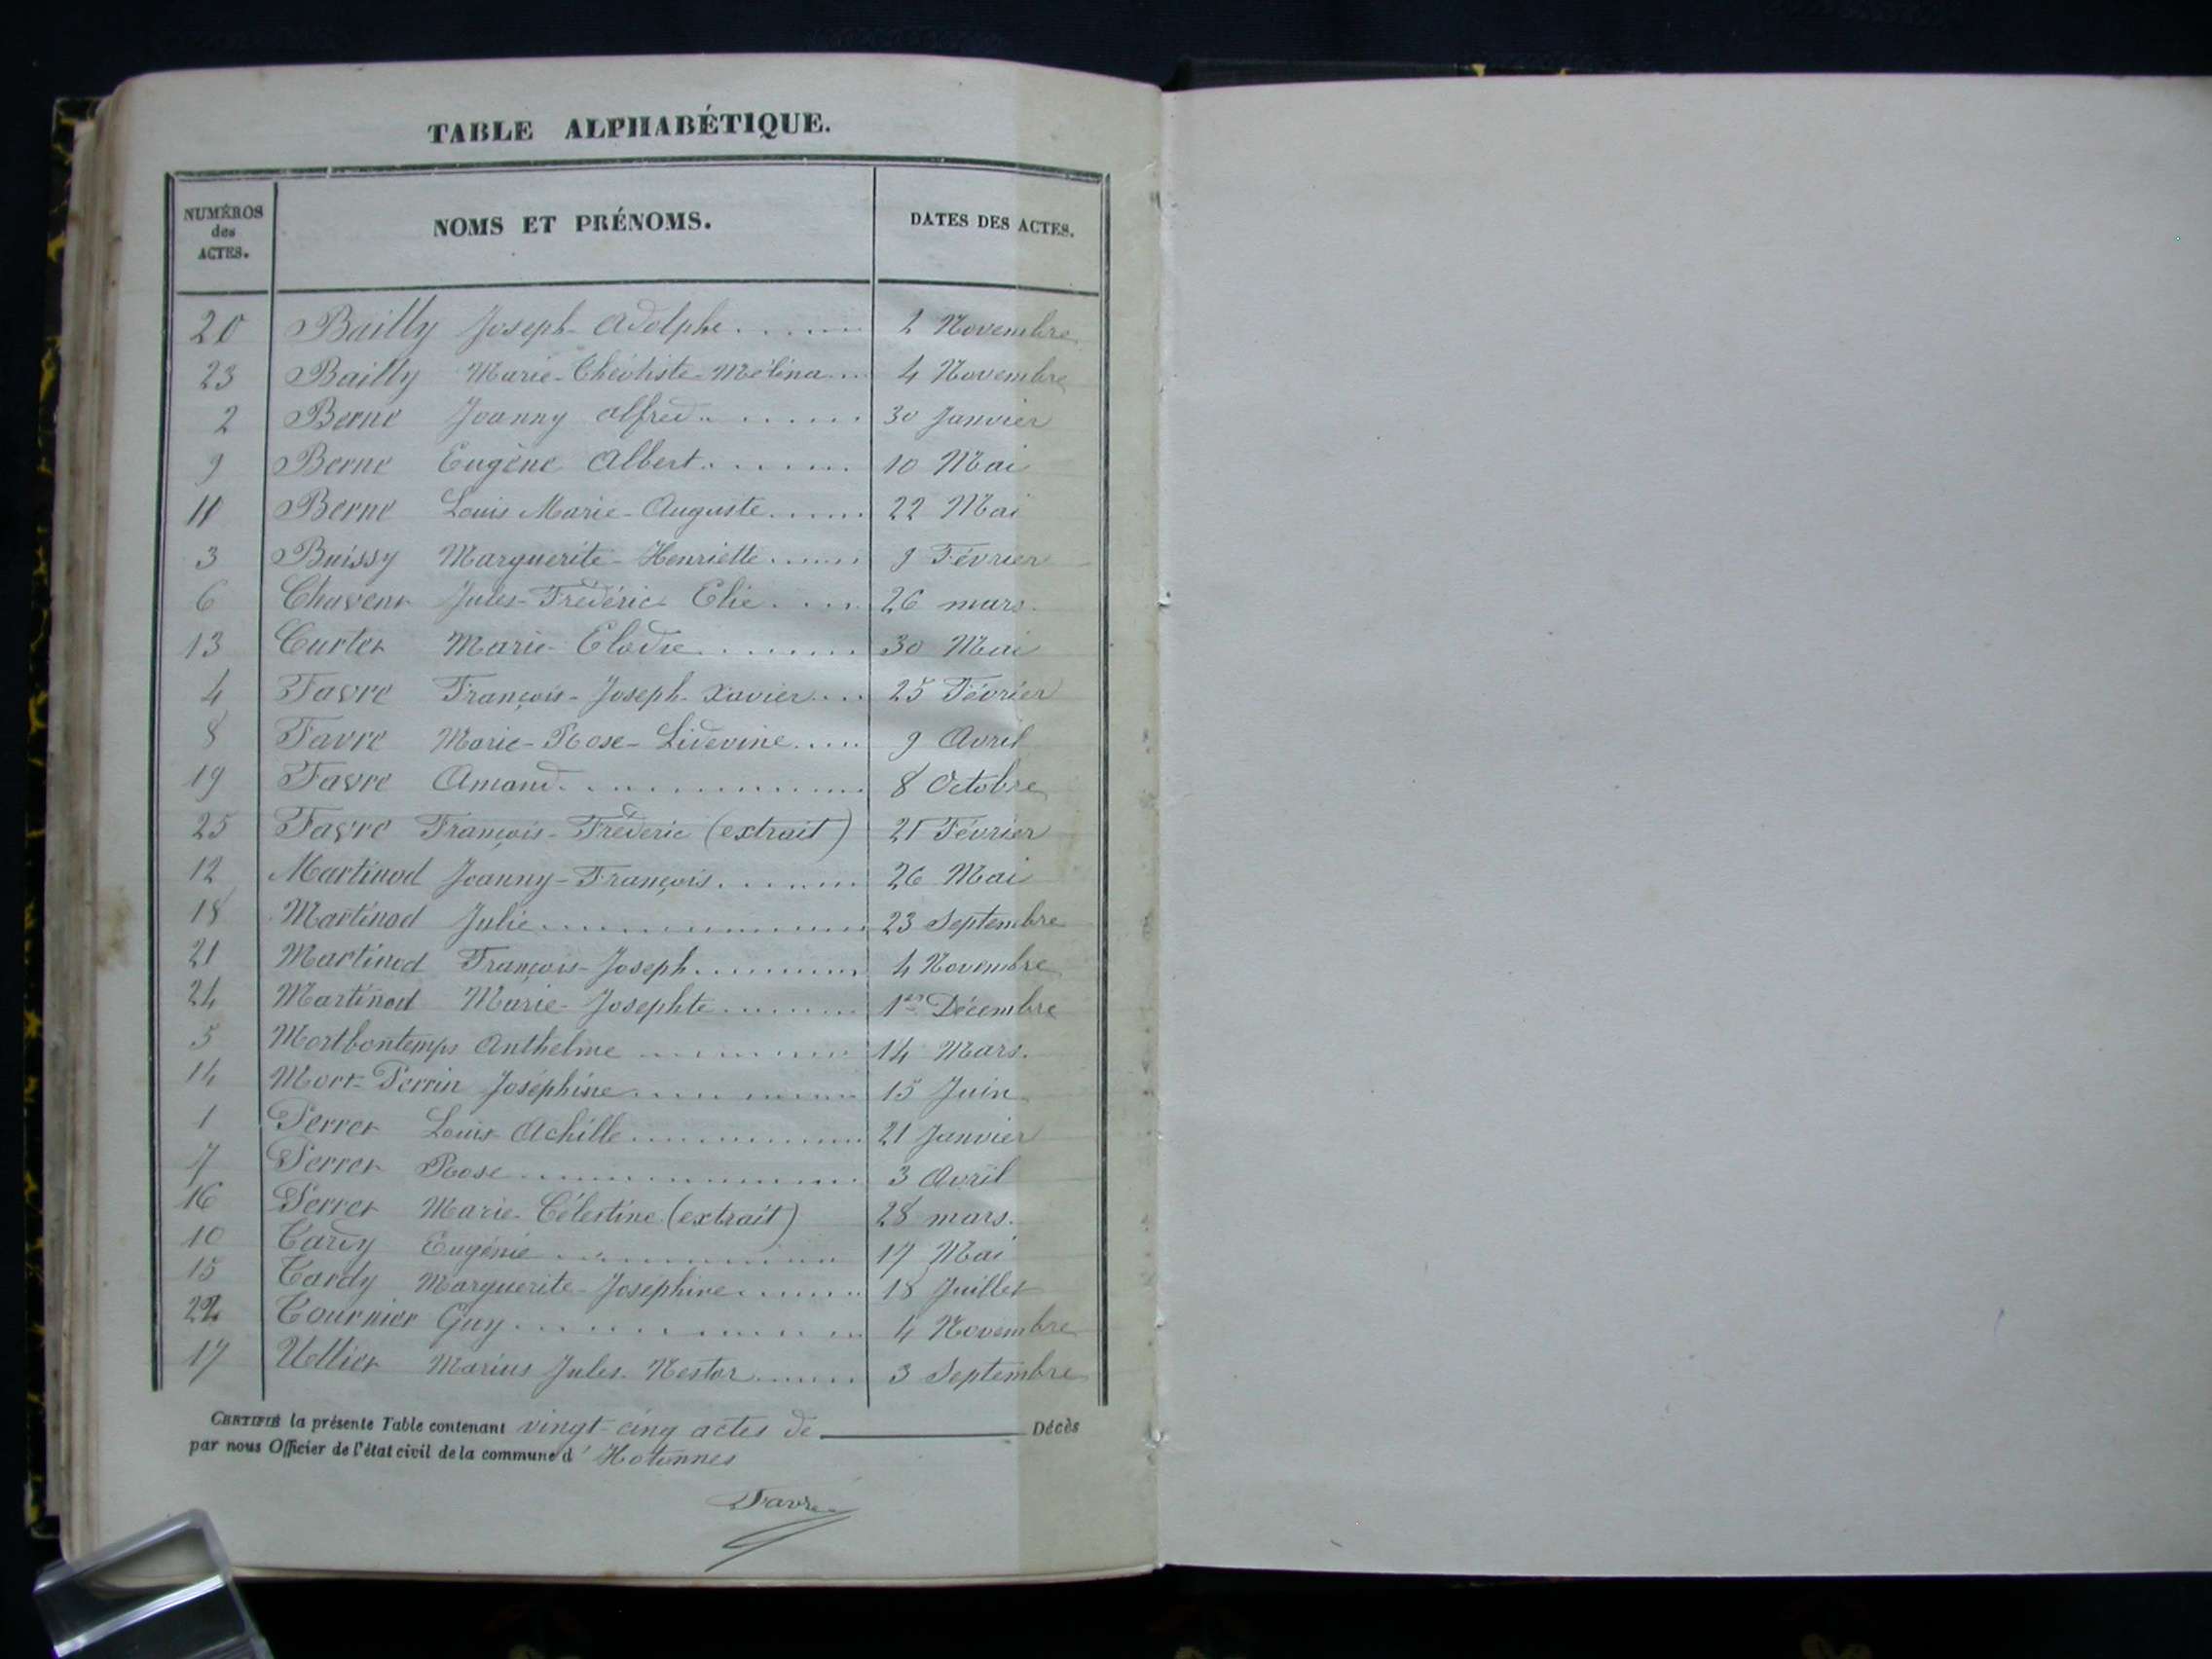 TABLE ALPHABÉTIQUE.
NUMÉROS des ACTES. NOMS ET PRÉNOMS. DATES DES ACTES.
20 Bailly Joseph-Adolphe 2 Novembre
23 Bailly Marie-Théotiste-Mélina 4 Novembre
2 Berne Joanny Alfred 30 Janvier
9 Berne Eugène Albert 10 Mai
11 Berne Louis Marie-Auguste 22 Mai
3 Buissy Marguerite-Henriette 9 Février
6 Chavent Jules-Frédéric Elie 26 mars.
13 Curtet Marie-Elodie 30 Mai
4 Favre François-Joseph-Xavier 25 Février
8 Favre Marie-Rose-Lidevine 9 Avril
19 Favre Amand 8 Octobre
25 Favre François-Fréderic (extrait) 21 Février
12 Martinod Joanny-François 26 Mai
18 Martinod Julie 23 Septembre
21 Martinod François-Joseph 4 Novembre
24 Martinod Marie-Josephte 1er Décembre
5 Mortbontemps Anthelme 14 Mars.
14 Mort-Perrin Joséphine 15 Juin
1 Perret Louis Achille 21 Janvier
7 Perret Rose 3 Avril
16 Perret Marie-Célestine (extrait) 28 mars.
10 Tardy Eugénie 17 Mai
15 Tardy Marguerite-Joséphine 18 Juillet
22 Tournier Guy 4 Novembre
17 Vettier Marius Jules Nestor 3 Septembre
CERTIFIÉ la présente Table contenant vingt-cinq actes de Décès
par nous Officier de l'état civil de la commune d'Hotonnes
Favre